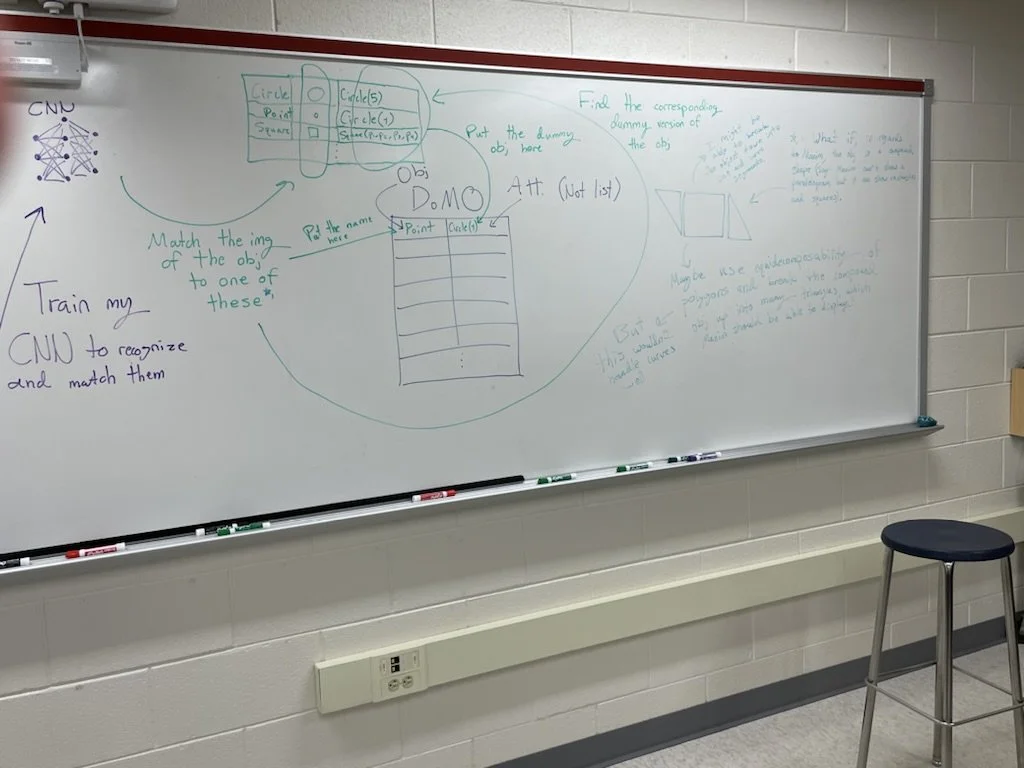 CNN
Train my
CNN to recognize
and match them
Circle
Circle(5)
Point
Circle(1)
Square
Match the img
of the obj
to one of
these*
Put the name
here
Obj
DoMO
Att. (Not list)
Point
Circle(1)
Put the dummy
obj here
Find the corresponding
dummy version of
the obj
I might be
able to
* What if, in regards
to Manim, the obj is a compound
Shape
parallelogram but it can show
and squares).
Maybe use equidecomposability of
polygons and break the compound
obj up into many triangles which
Manim should be able to display
But
this wouldn't
handle curves